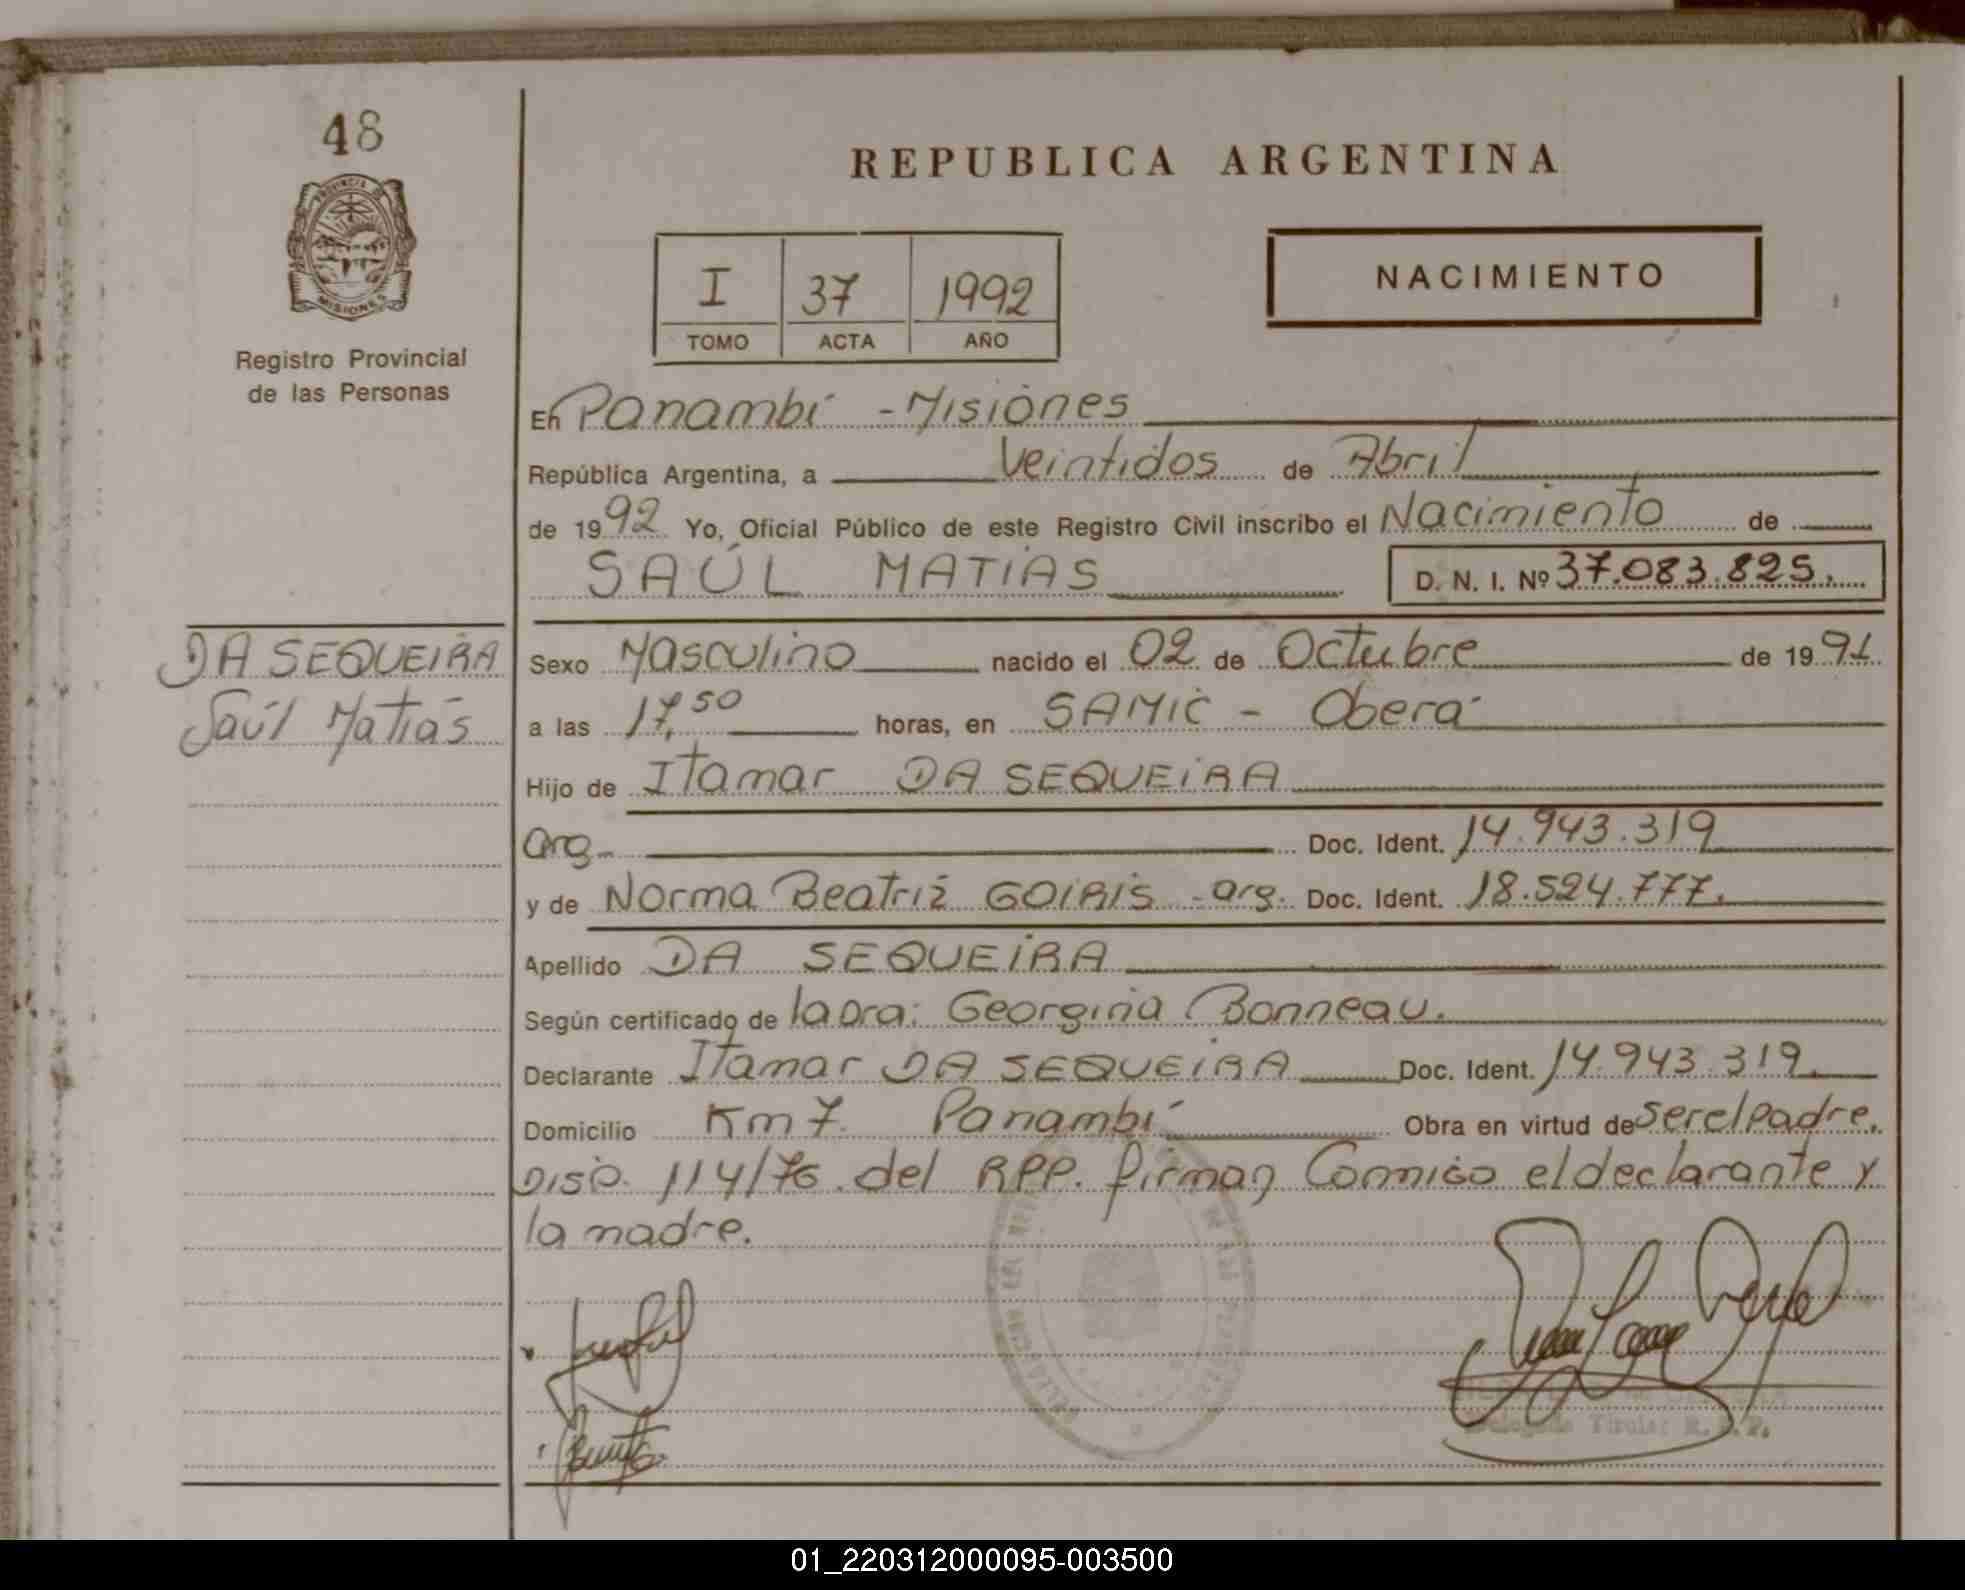 48
PROVINCIA DE
MISIONES
Registro Provincial
de las Personas
REPUBLICA ARGENTINA
I 37 1992
TOMO ACTA AÑO
NACIMIENTO
En Panambí - Misiones
República Argentina, a Veintidos de Abril
de 1992 Yo, Oficial Público de este Registro Civil inscribo el Nacimiento de
SAÚL MATIAS D. N. I. Nº 37.083.825.
DA SEQUEIRA
Saúl Matias
Sexo Masculino nacido el 02 de Octubre de 1991
a las 17,50 horas, en SAMIC - Oberá
Hijo de Itamar DA SEQUEIRA
arg- Doc. Ident. 14.943.319
y de Norma Beatriz GOIRIS - arg. Doc. Ident. 18.524.777.
Apellido DA SEQUEIRA
Según certificado de la Dra: Georgina Bonneau.
Declarante Itamar DA SEQUEIRA Doc. Ident. 14.943.319.
Domicilio Km 7. Panambí Obra en virtud de ser el padre.
Disp. 114/76. del RPP. firman Conmigo el declarante y
la madre.
Titular R.P.P.
01_220312000095-003500